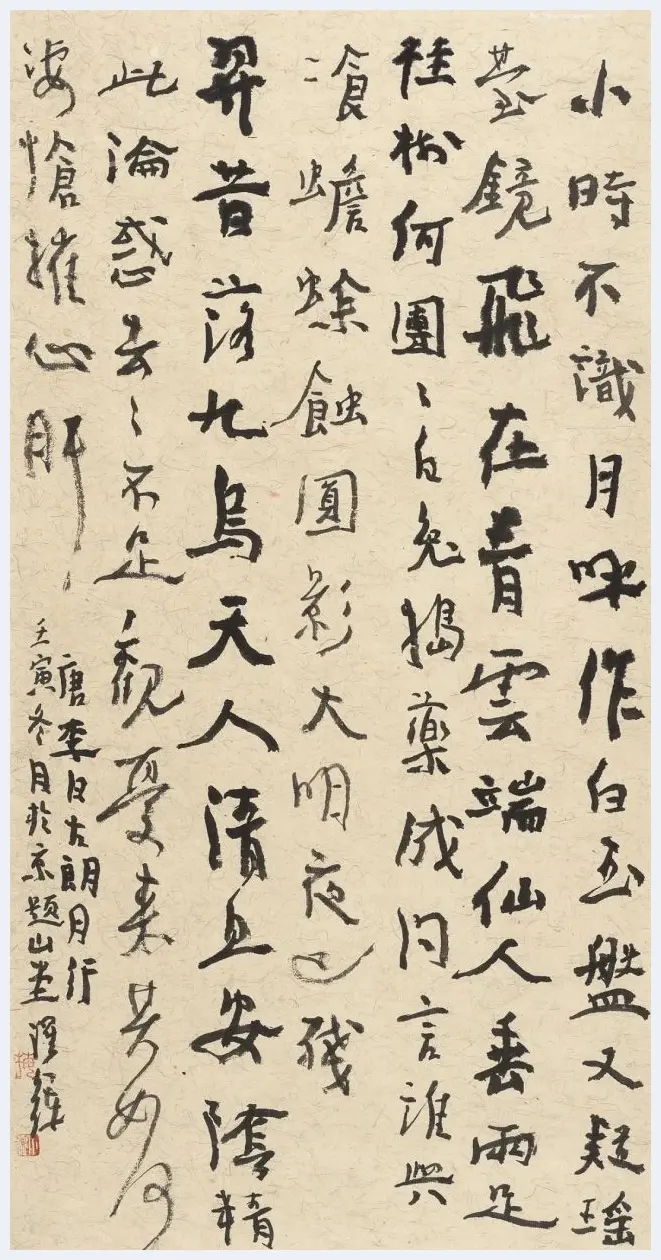 小時不識月呼作白玉盤又疑瑶
臺鏡飛在青雲端仙人垂兩足
桂樹何團〻白兔搗藥成問言誰與
湌蟾蜍蝕圓影大明夜已殘
羿昔落九烏天人清且安陰精
此淪惑去〻不足觀憂來其如何
凄愴摧心肝
唐李白古朗月行
壬寅冬月於京題山堂